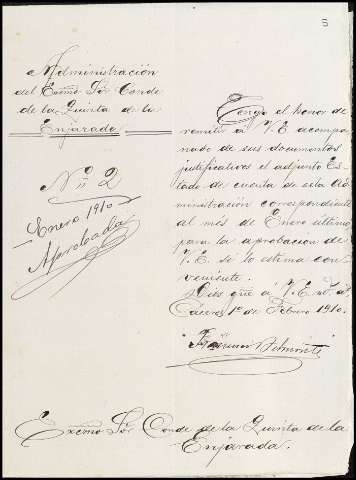 8
Administración
del Excmo Sõr Conde
de la Quinta de la
Enjarada
Nº 2
Enero 1910
Aprobada
Tengo el honor de
remitir á V. E. acompa
ñado de sus documentos
justificativos el adjunto Es-
tado de cuenta de esta Ad
ministración correspondiente
al mes de Enero último
para la aprobación de
V. E. si lo estima con-
veniente.
Dios gue á V. E. m. a.
Cáceres 1º de Febrero 1910.
Belmonte
Excmo Sõr Conde de la Quinta de la
Enjarada.